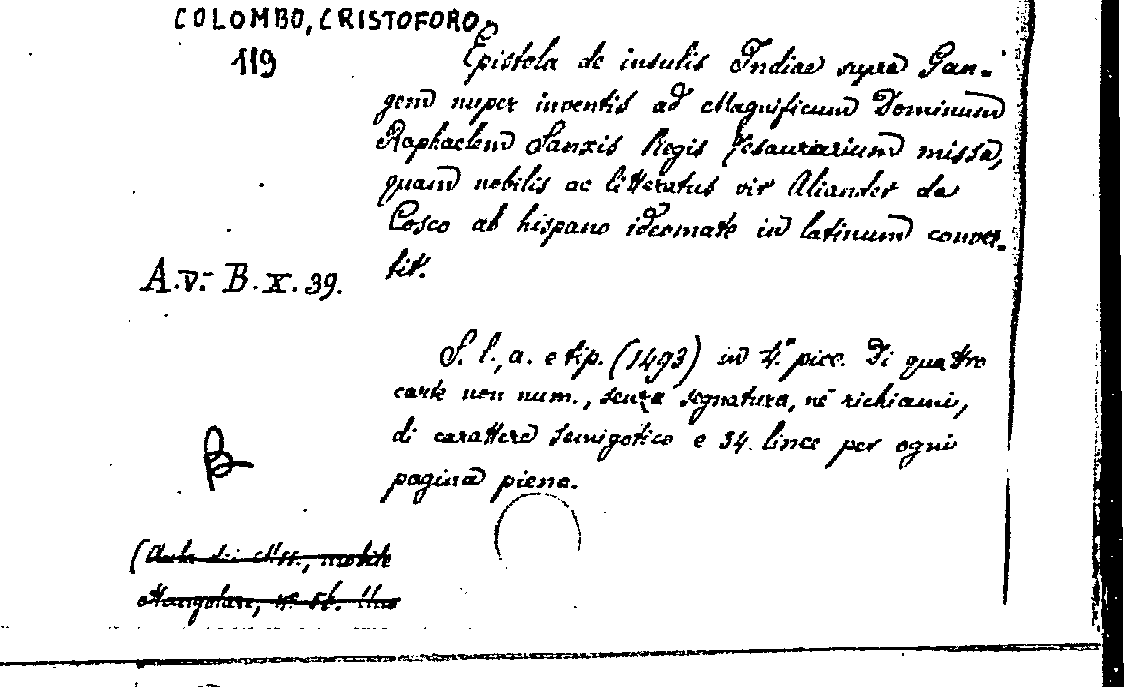 COLOMBO, CRISTOFORO
119
Epistola de insulis Indiae supra Gan-
gem nuper inventis ad Magnificum Dominum
Raphaelem Sanxis Regis Tesaurarium missa,
quam nobilis ac litteratus vir Aliander de
Cosco ab hispano ideomate in latinum conver-
tit.
A.V. B.X. 39.
S. l., a. e tip. (1493) in 4.° picc. Di quattro
carte non num., senza segnatura, nè richiami,
di carattere semigotico e 34 linee per ogni
pagina piena.
B
(Aula dei Mss., mobile